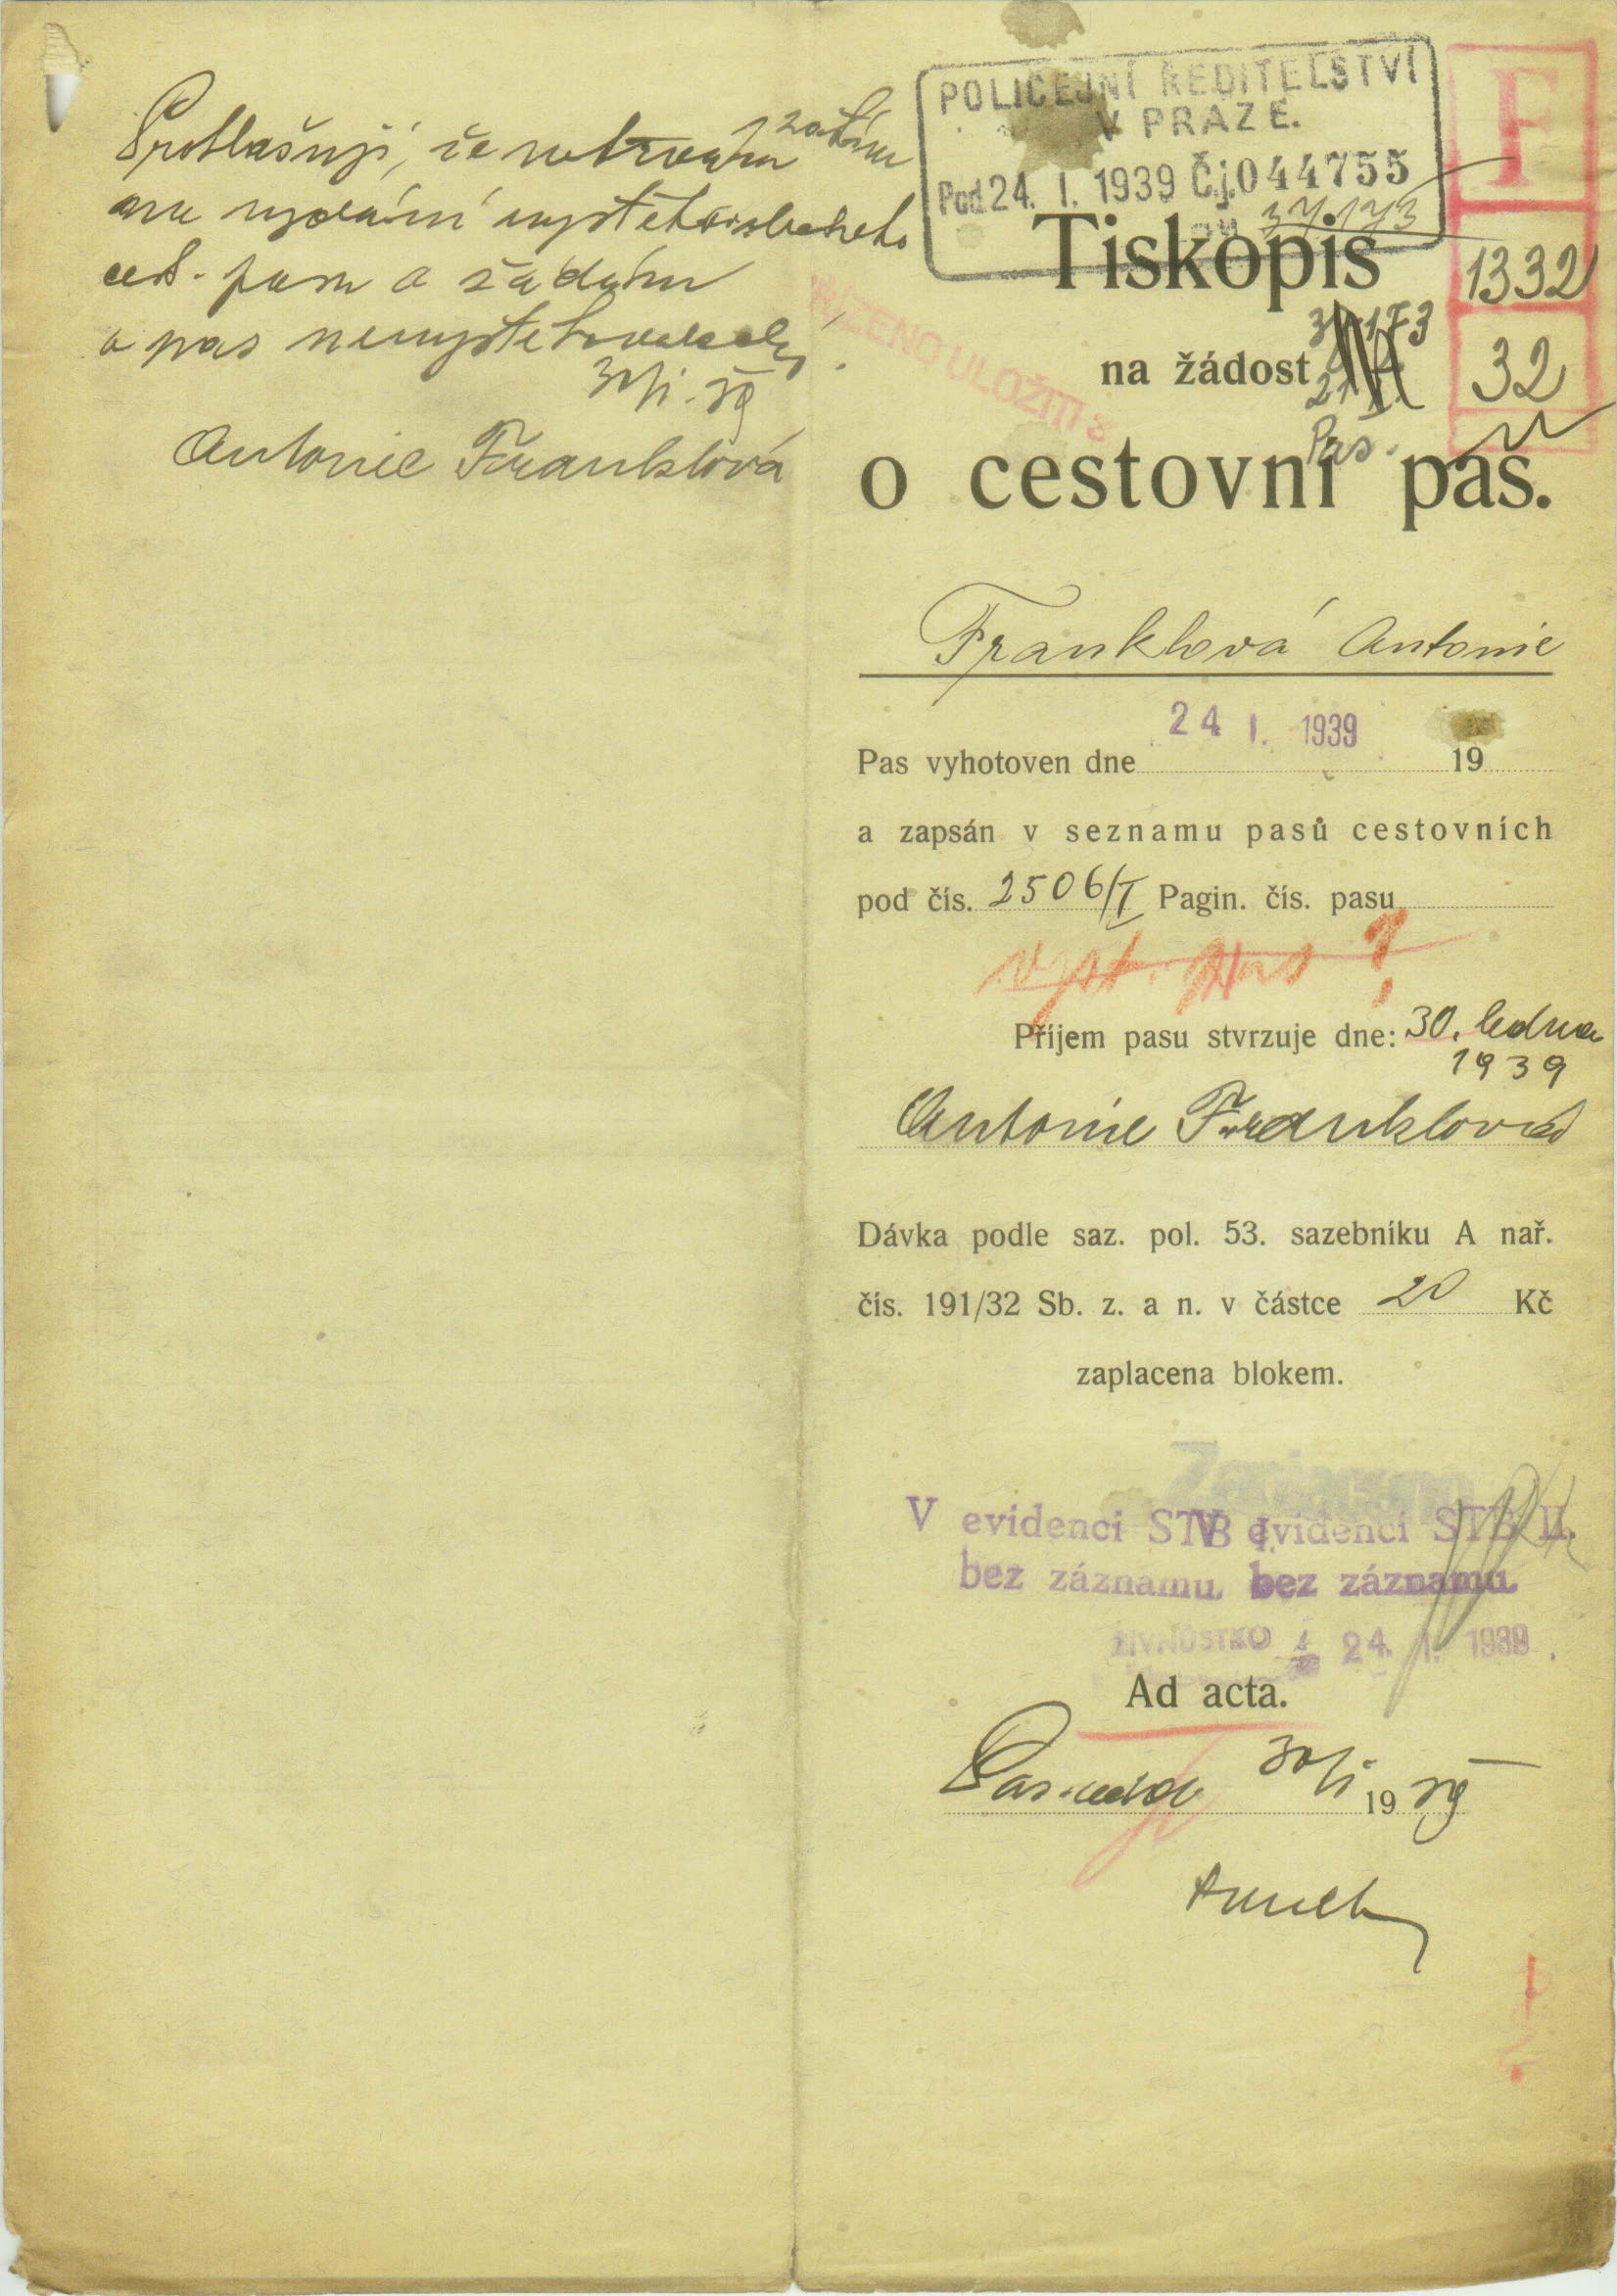 Prohlašuji, že netrvám zatím
na vydání vystěhovaleckého
cest. pasu a žádám
o pas nevystěhovalecký.
30/I. 39
Antonie Franklová
POLICEJNÍ ŘEDITELSTVÍ
V PRAZE.
Pod 24. I. 1939 Č.j. 044755
37.173
F
1332
32
Tiskopis
na žádost
Pas.
o cestovní pas.
Franklová Antonie
24 I. 1939
Pas vyhotoven dne 19
a zapsán v seznamu pasů cestovních
pod čís. 2506/I Pagin. čís. pasu
vyst. pas ?
Příjem pasu stvrzuje dne: 30. ledna
1939
Antonie Franklová
Dávka podle saz. pol. 53. sazebníku A nař.
čís. 191/32 Sb. z. a n. v částce 20 Kč
zaplacena blokem.
Zaplaceno
V evidenci STB I. V evidenci STB II.
bez záznamu. bez záznamu.
24. I. 1939
Ad acta.
30/I 19 39